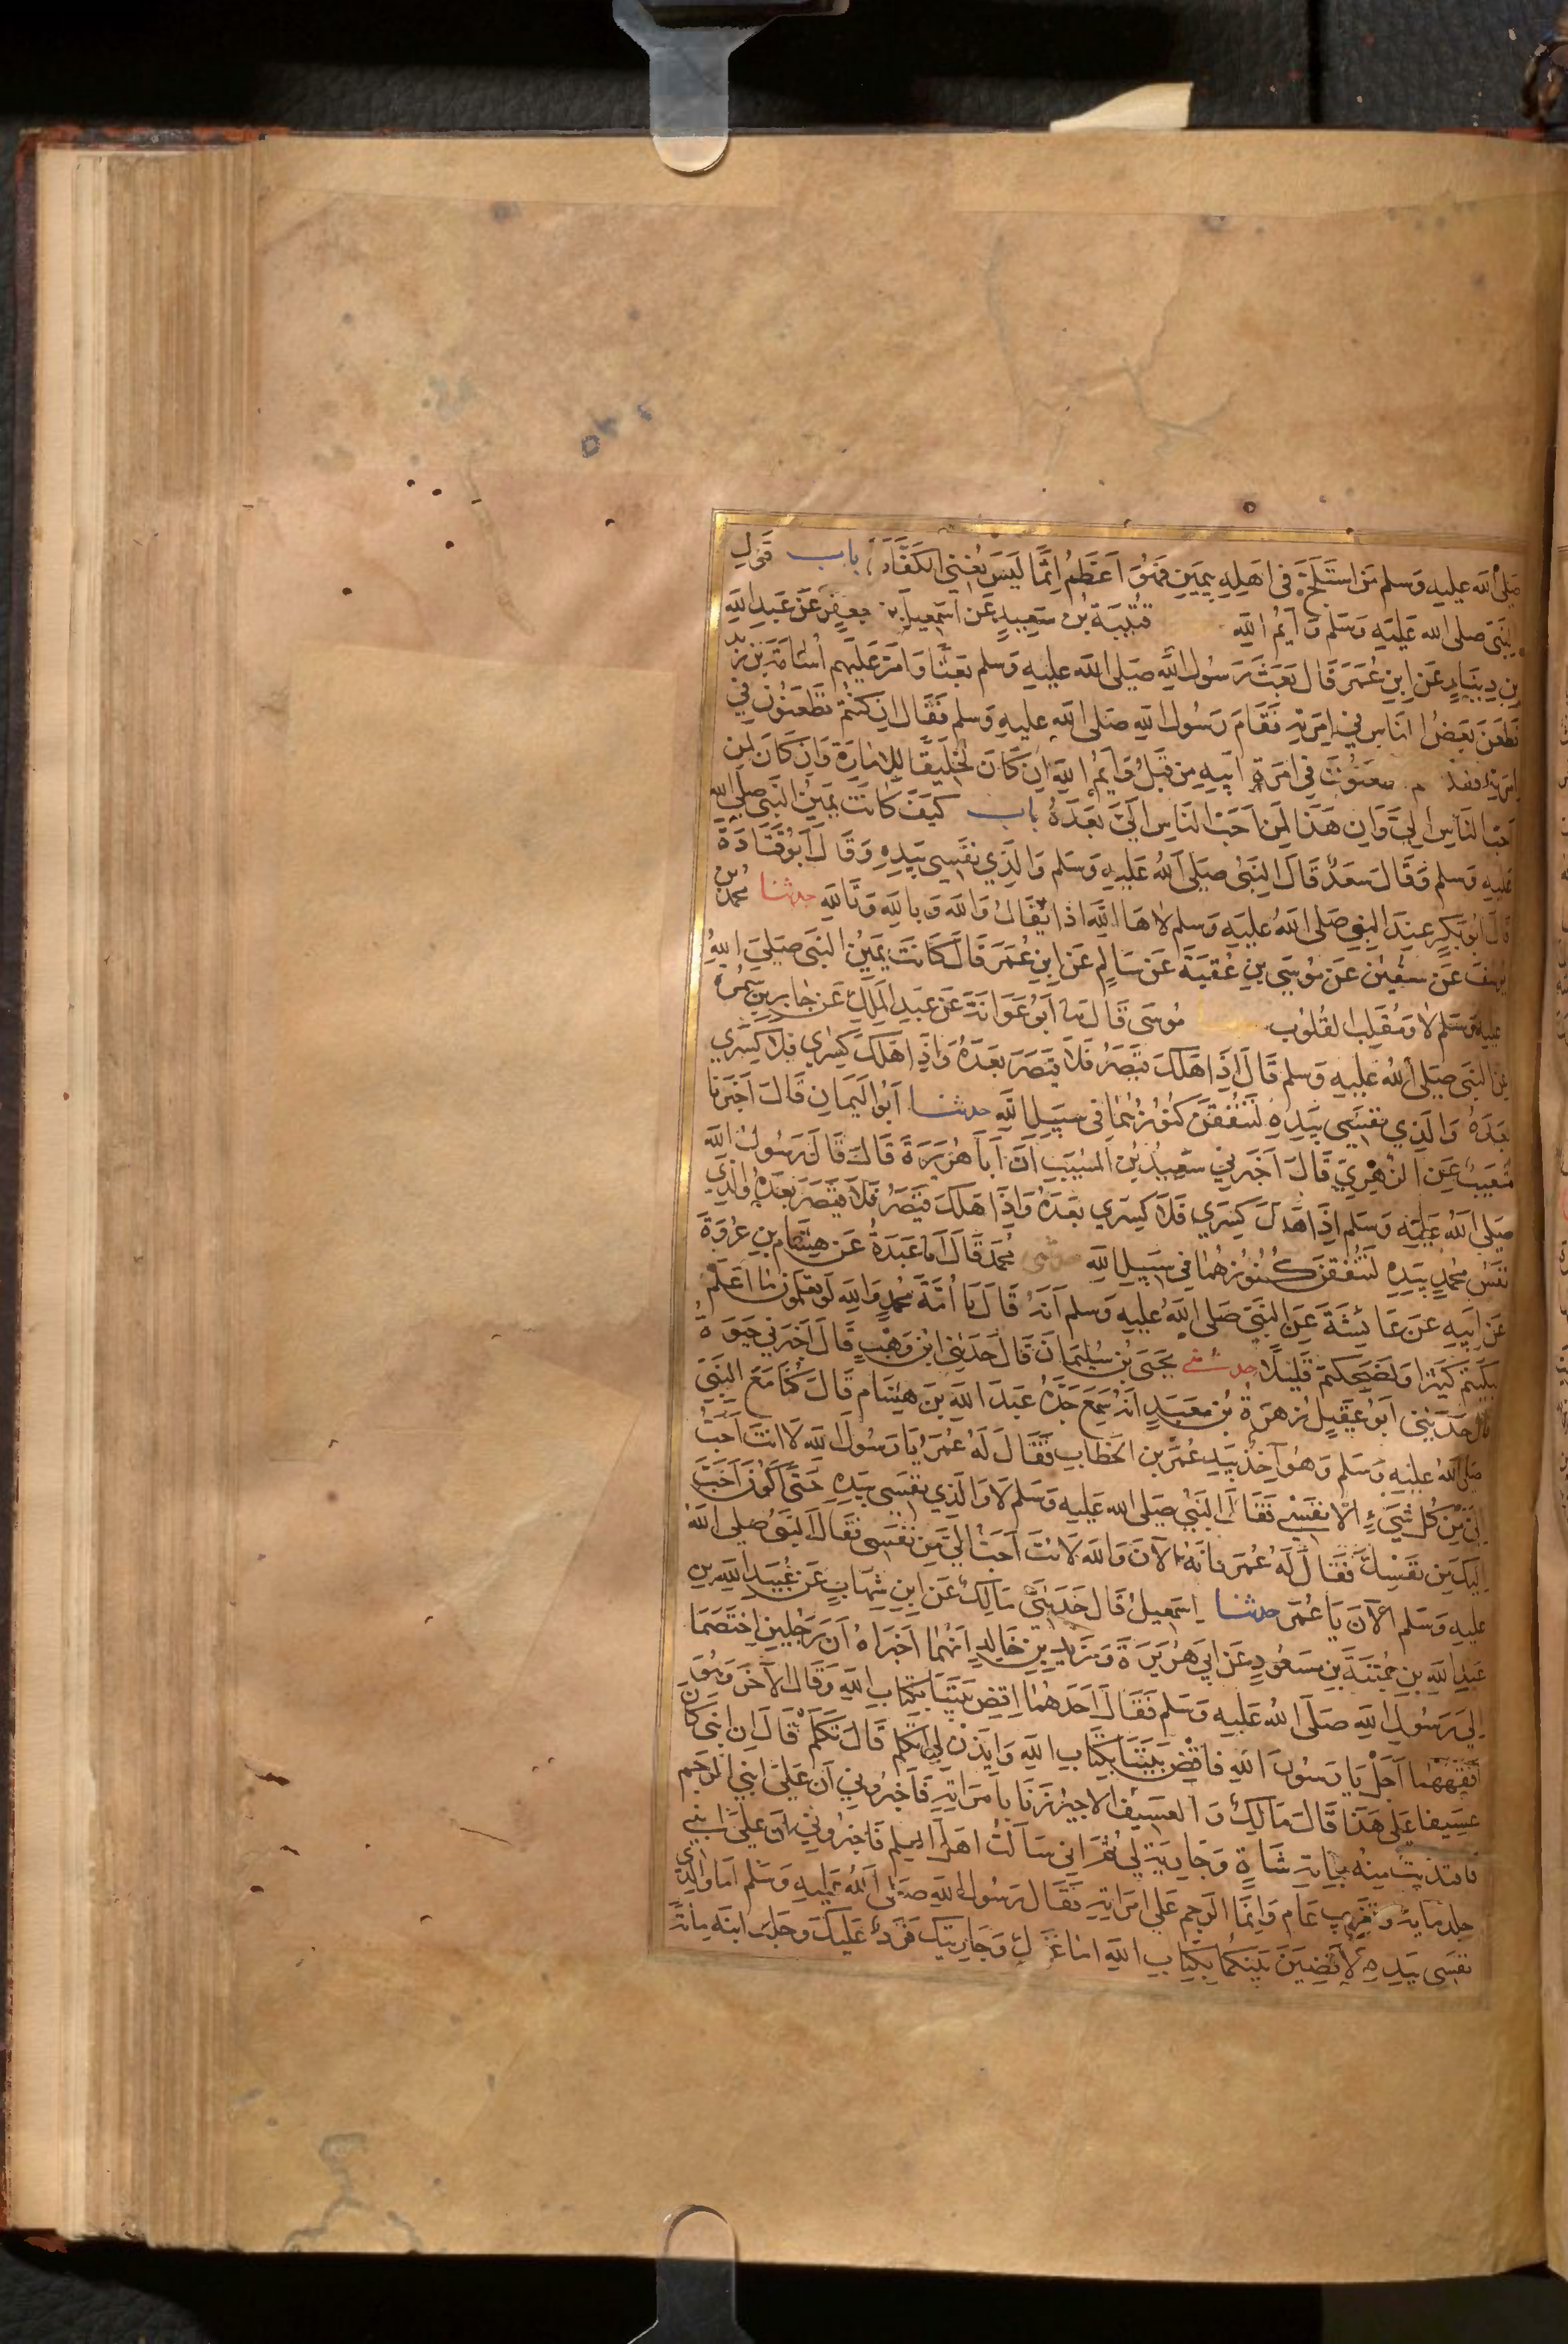 صلى الله عليه وسلم من استلج في اهله بيمين فهو اعظم اثما ليس يغني الكفارة باب قول
النبي صلى الله عليه وسلم وايم الله قتيبة بن سعيد عن اسمعيل بن جعفر عن عبد الله
بن دينار عن ابن عمر قال بعث رسول الله صلى الله عليه وسلم بعثا وامر عليهم اسامة بن زيد
فطعن بعض الناس في امرته فقام رسول الله صلى الله عليه وسلم فقال ان كنتم تطعنون في
امرته فقد تطعنون في امرة ابيه من قبل وايم الله ان كان لخليقا للامارة وان كان لمن
احب الناس الي وان هذا لمن احب الناس الي بعده باب كيف كانت يمين النبي صلى الله
عليه وسلم وقال سعد قال النبي صلى الله عليه وسلم والذي نفسي بيده وقال ابو قتادة
قال ابو بكر عند النبي صلى الله عليه وسلم لاها الله اذا يقال والله وبالله وتالله حدثنا محمد بن
يوسف عن سفين عن موسى بن عقبة عن سالم عن ابن عمر قال كانت يمين النبي صلى الله
عليه وسلم لا ومقلب القلوب موسى قال ثنا ابو عوانة عن عبد الملك عن جابر بن سمرة
عن النبي صلى الله عليه وسلم قال اذا هلك قيصر فلا قيصر بعده واذا هلك كسري فلا كسري
بعده والذي نفسي بيده لتنفقن كنوزهما في سبيل الله حدثنا ابو اليمان قال اخبرنا
شعيب عن الزهري قال اخبرني سعيد بن المسيب ان ابا هريرة قال قال رسول الله
صلى الله عليه وسلم اذا هلك كسري فلا كسري بعده واذا هلك قيصر فلا قيصر بعده والذي
نفس محمد بيده لتنفقن كنوزهما في سبيل الله حدثني محمد قال انا عبدة عن هشام بن عروة
عن ابيه عن عائشة عن النبي صلى الله عليه وسلم انه قال يا امة محمد والله لو تعلمون ما اعلم
لبكيتم كثيرا ولضحكتم قليلا حدثني يحيى بن سليمان قال حدثني ابن وهب قال اخبرني حيوة
قال حدثني ابو عقيل زهرة بن معبد انه سمع جده عبد الله بن هشام قال كنا مع النبي
صلى الله عليه وسلم وهو آخذ بيد عمر بن الخطاب فقال له عمر يا رسول الله لانت احب
الي من كل شيء الا نفسي فقال النبي صلى الله عليه وسلم لا والذي نفسي بيده حتى اكون احب
اليك من نفسك فقال له عمر فانه الآن والله لانت احب الي من نفسي فقال النبي صلى الله
عليه وسلم الآن يا عمر حدثنا اسمعيل قال حدثني مالك عن ابن شهاب عن عبيد الله بن
عبد الله بن عتبة بن مسعود عن ابي هريرة وزيد بن خالد انهما اخبراه ان رجلين اختصما
الى رسول الله صلى الله عليه وسلم فقال احدهما اقض بيننا بكتاب الله وقال الآخر وهو
افقههما اجل يا رسول الله فاقض بيننا بكتاب الله وايذن لي اتكلم قال تكلم قال ان ابني كان
عسيفا على هذا قال مالك والعسيف الاجير زنا بامراته فاخبروني ان على ابني الرجم
فافتديت منه بماية شاة وجارية لي ثم اني سالت اهل العلم فاخبروني ان على ابني
جلد ماية وتغريب عام وانما الرجم على امراته فقال رسول الله صلى الله عليه وسلم اما والذي
نفسي بيده لاقضين بينكما بكتاب الله اما غنمك وجاريتك فرد عليك وجلد ابنه مائة